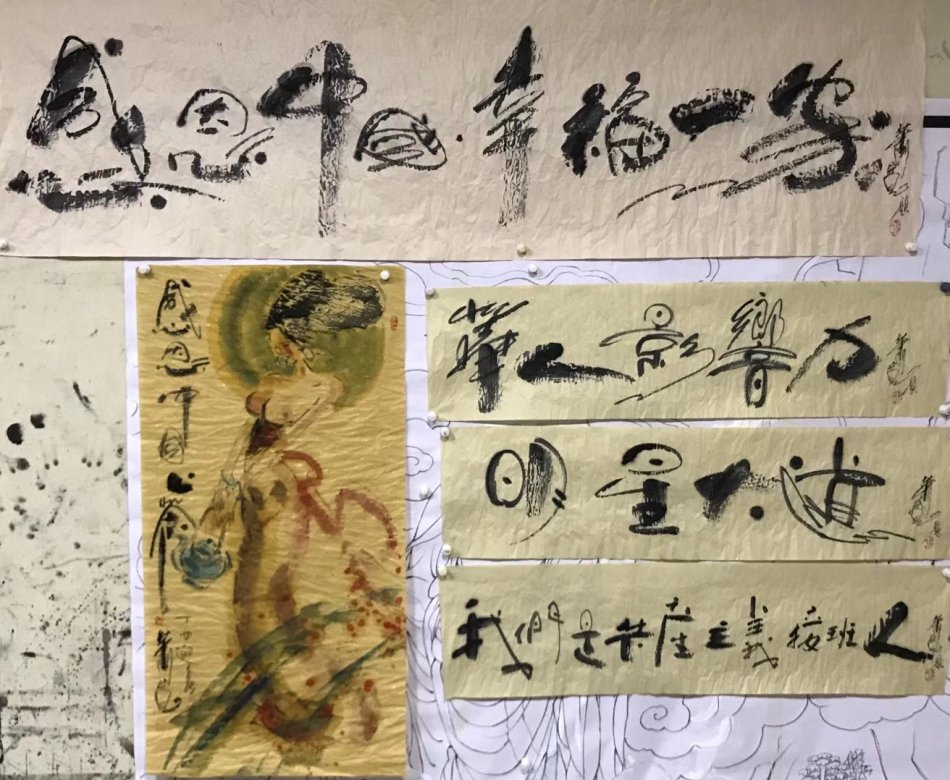 感恩中国幸福一家
感恩中國
丁酉
華人影響力
明星大道
我們是共產主義接班人